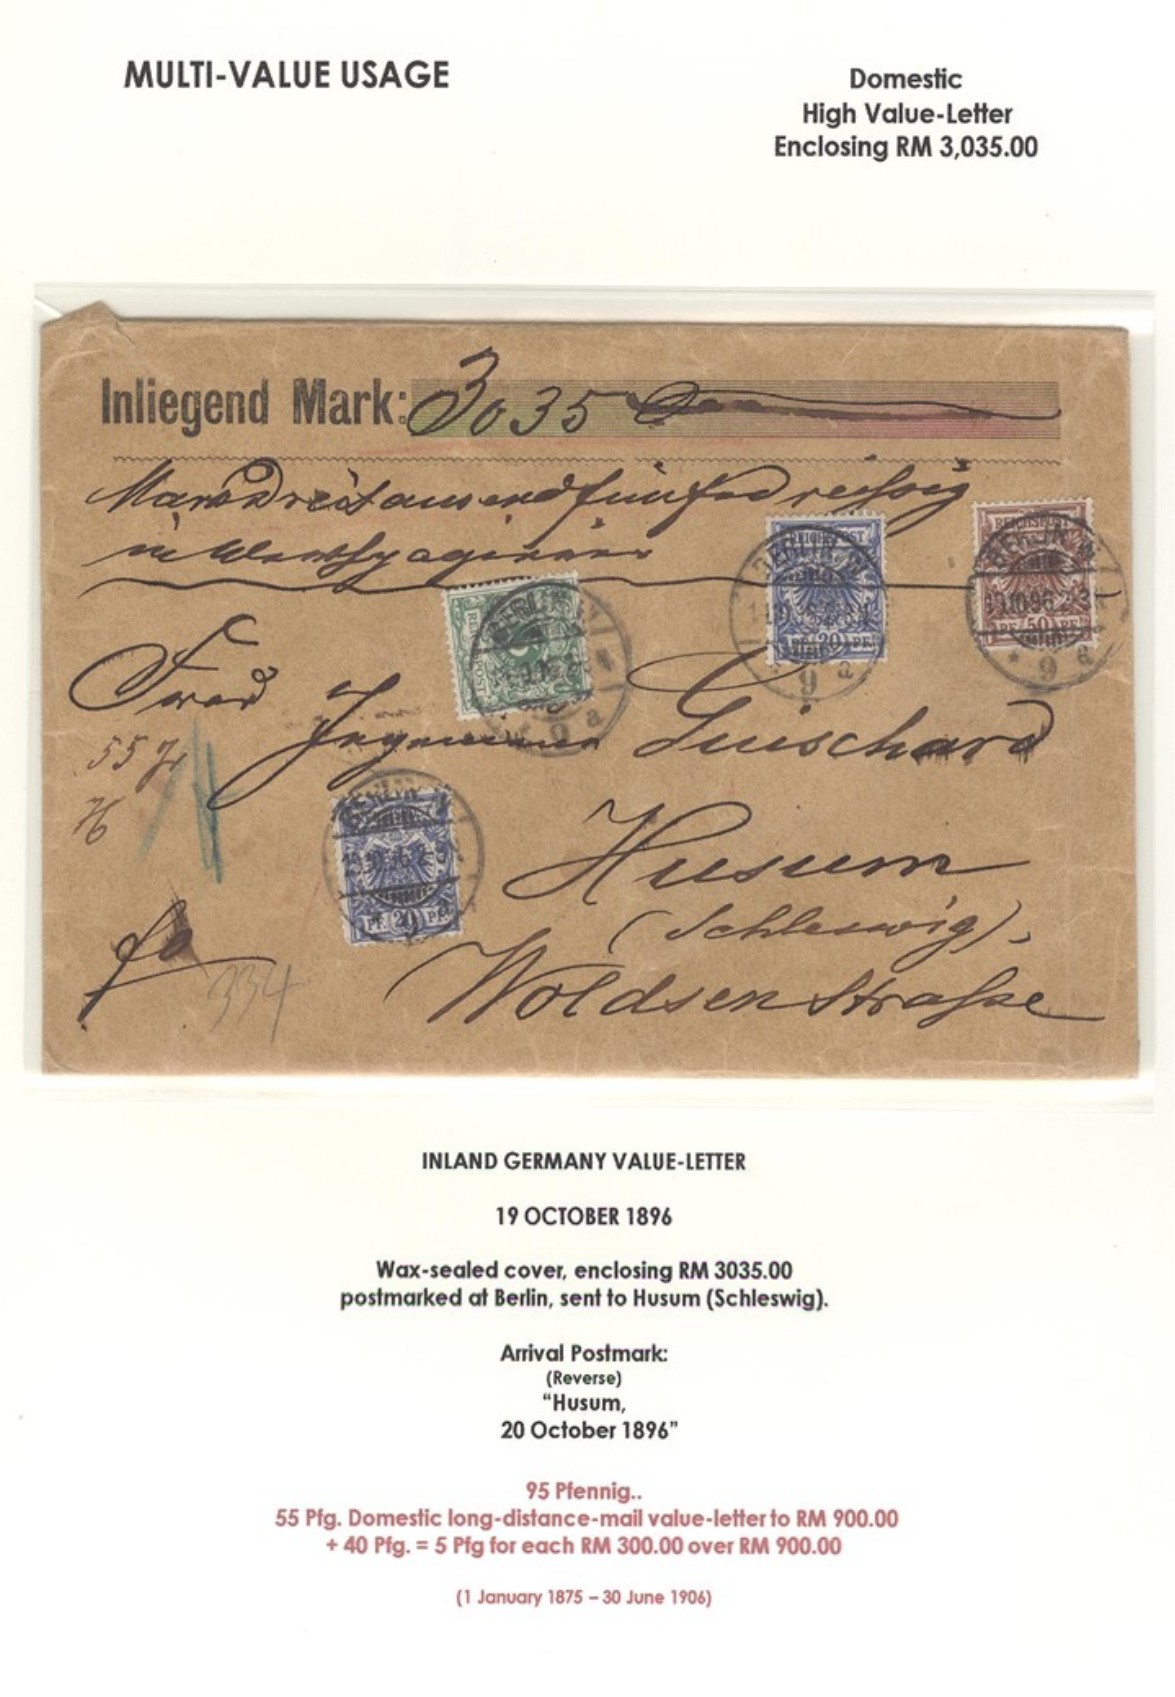 MULTI-VALUE USAGE
Domestic
High Value-Letter
Enclosing RM 3,035.00
Inliegend Mark: 3035
Mark dreitausendfünfunddreissig
in Werthpapieren
REICHSPOST
PF. 20 PF.
REICHSPOST
PF. 50 PF.
BERLIN W
9 a
BERLIN W
19.10.96
9 a
REICHSPOST
5
BERLIN W
9 a
Frau
Ingenieur Guischard
55 gr
Husum
(Schleswig).
Woldsenstraße
PF. 20 PF.
334
INLAND GERMANY VALUE-LETTER
19 OCTOBER 1896
Wax-sealed cover, enclosing RM 3035.00
postmarked at Berlin, sent to Husum (Schleswig).
Arrival Postmark:
(Reverse)
“Husum,
20 October 1896”
95 Pfennig..
55 Pfg. Domestic long-distance-mail value-letter to RM 900.00
+ 40 Pfg. = 5 Pfg for each RM 300.00 over RM 900.00
(1 January 1875 – 30 June 1906)